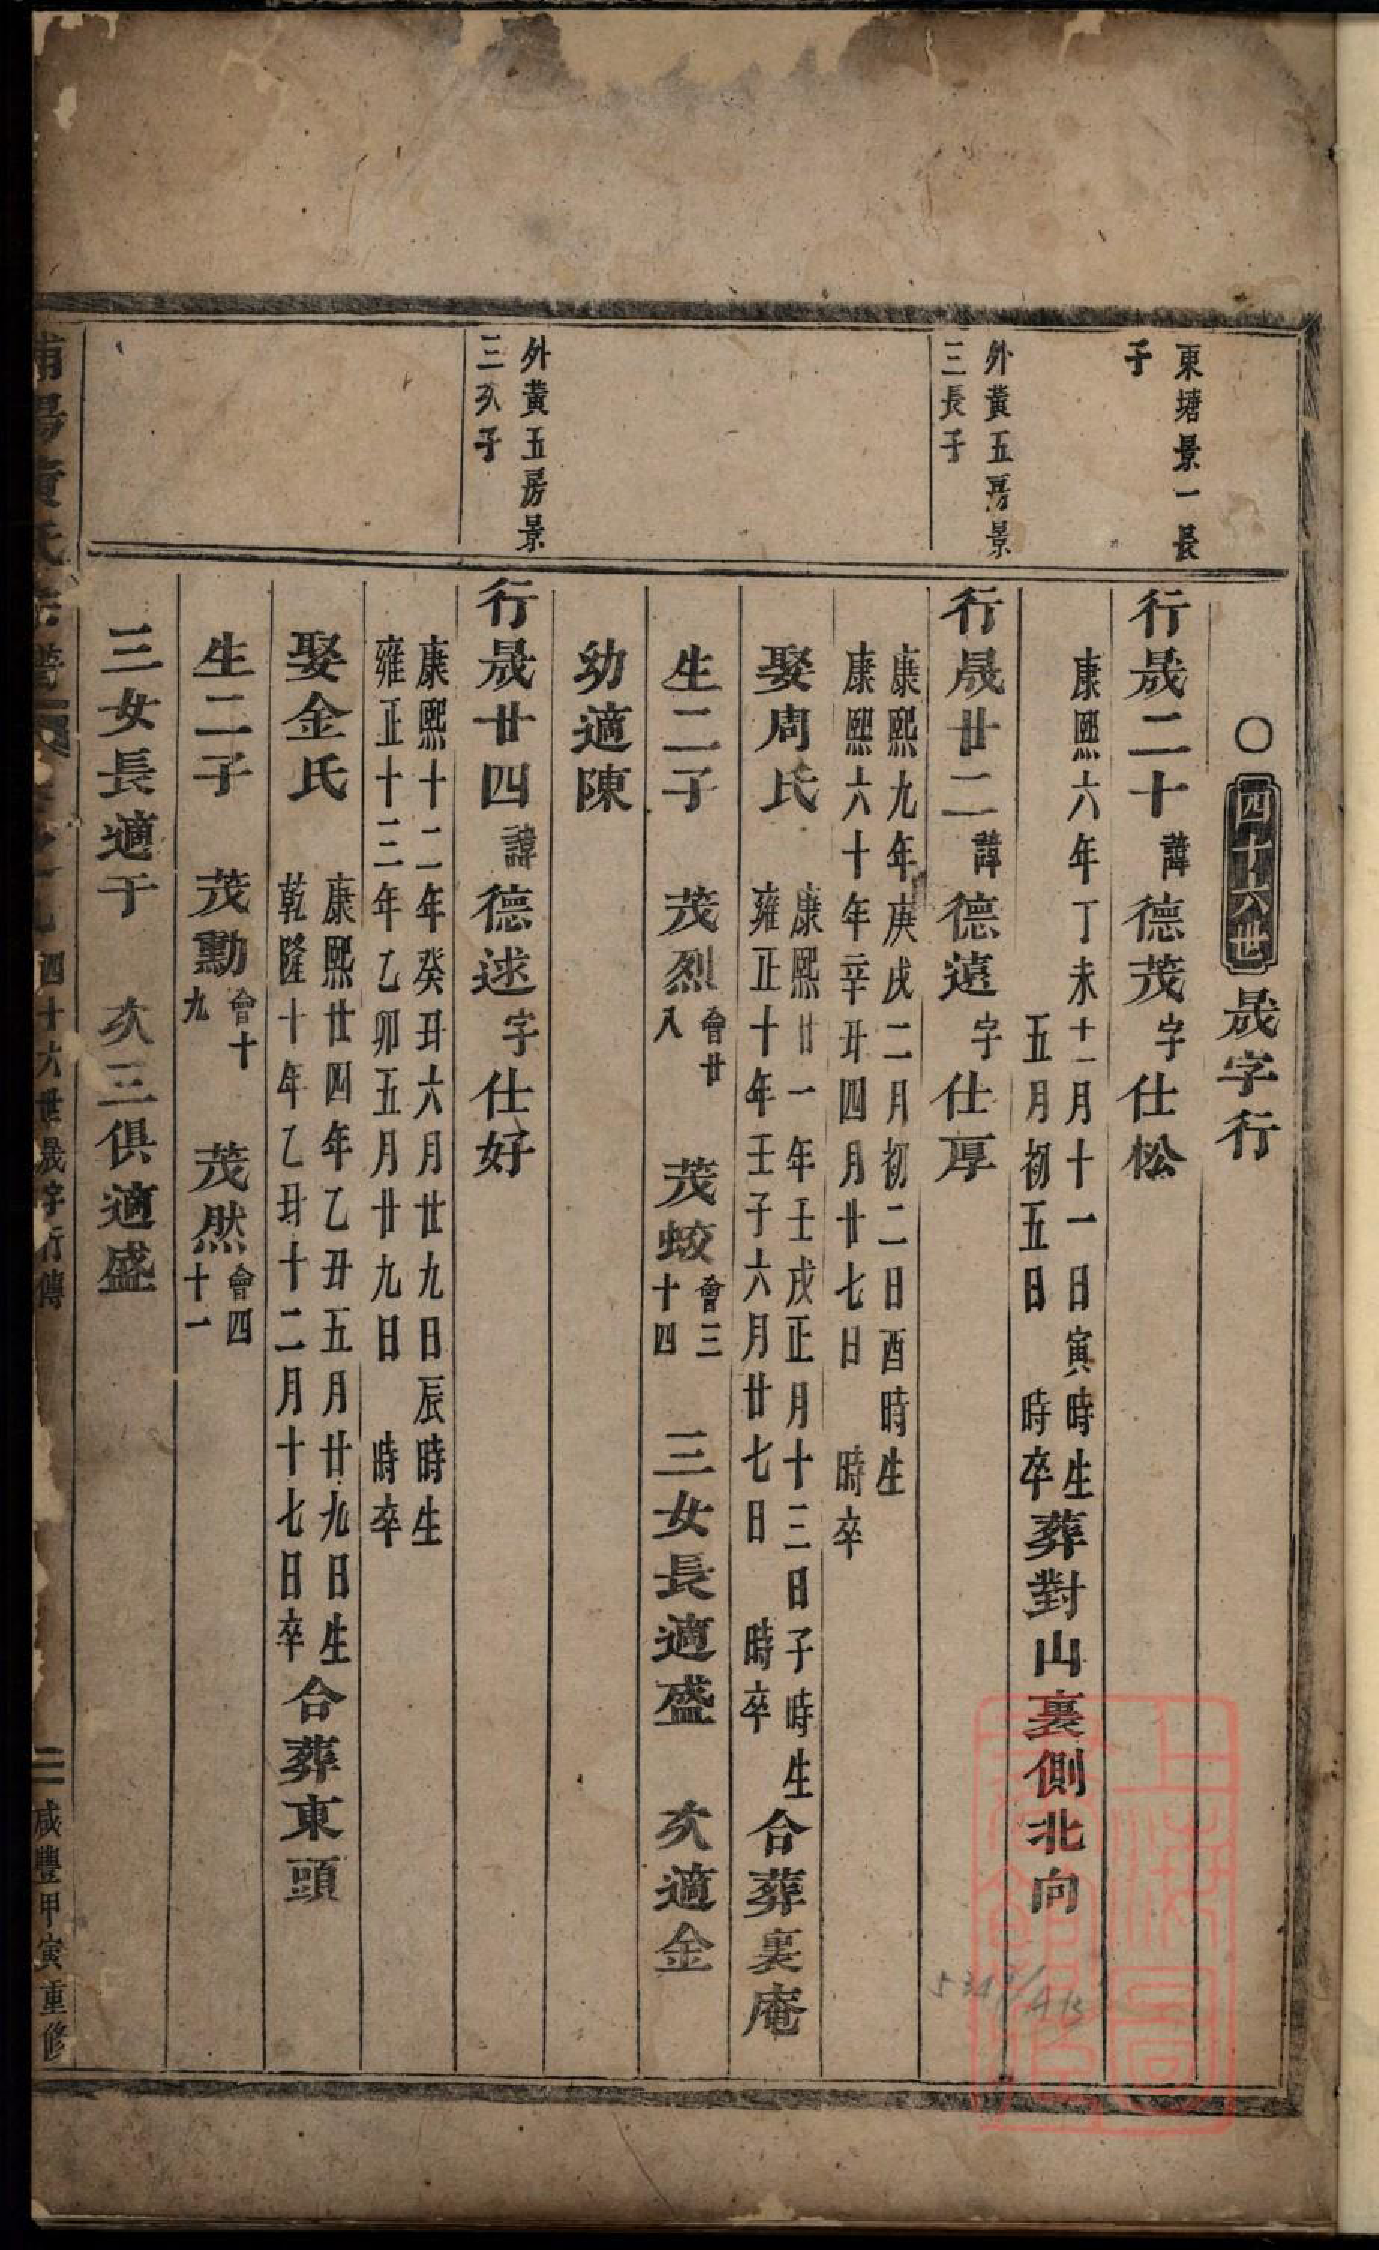 〇四十六世晟字行
東塘景一長
子
行晟二十諱德茂字仕松
康熙六年丁未十一月十一日寅時生
五月初五日 時卒
葬對山裏側北向
外黃五房景
三長子
行晟廿二諱德遠字仕厚
康熙九年庚戌二月初二日酉時生
康熙六十年辛丑四月廿七日 時卒
娶周氏
康熙廿一年壬戌正月十三日子時生
雍正十年壬子六月廿七日 時卒
合葬裏庵
生二子 茂烈會廿八 茂蛟會三十四 三女長適盛 次適金
幼適陳
外黃五房景
三次子
行晟廿四諱德逑字仕好
康熙十二年癸丑六月廿九日辰時生
雍正十三年乙卯五月廿九日 時卒
娶金氏
康熙廿四年乙丑五月廿九日生
乾隆十年乙丑十二月十七日卒
合葬東頭
生二子 茂勳會十九 茂然會四十一
三女長適于 次三俱適盛
四十六世晟字行傳
二 咸豐甲寅重修